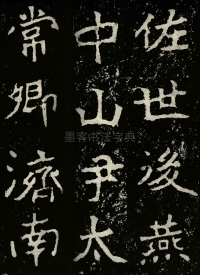 佐世後燕
中山尹太
常卿濟南
墨客书法字典